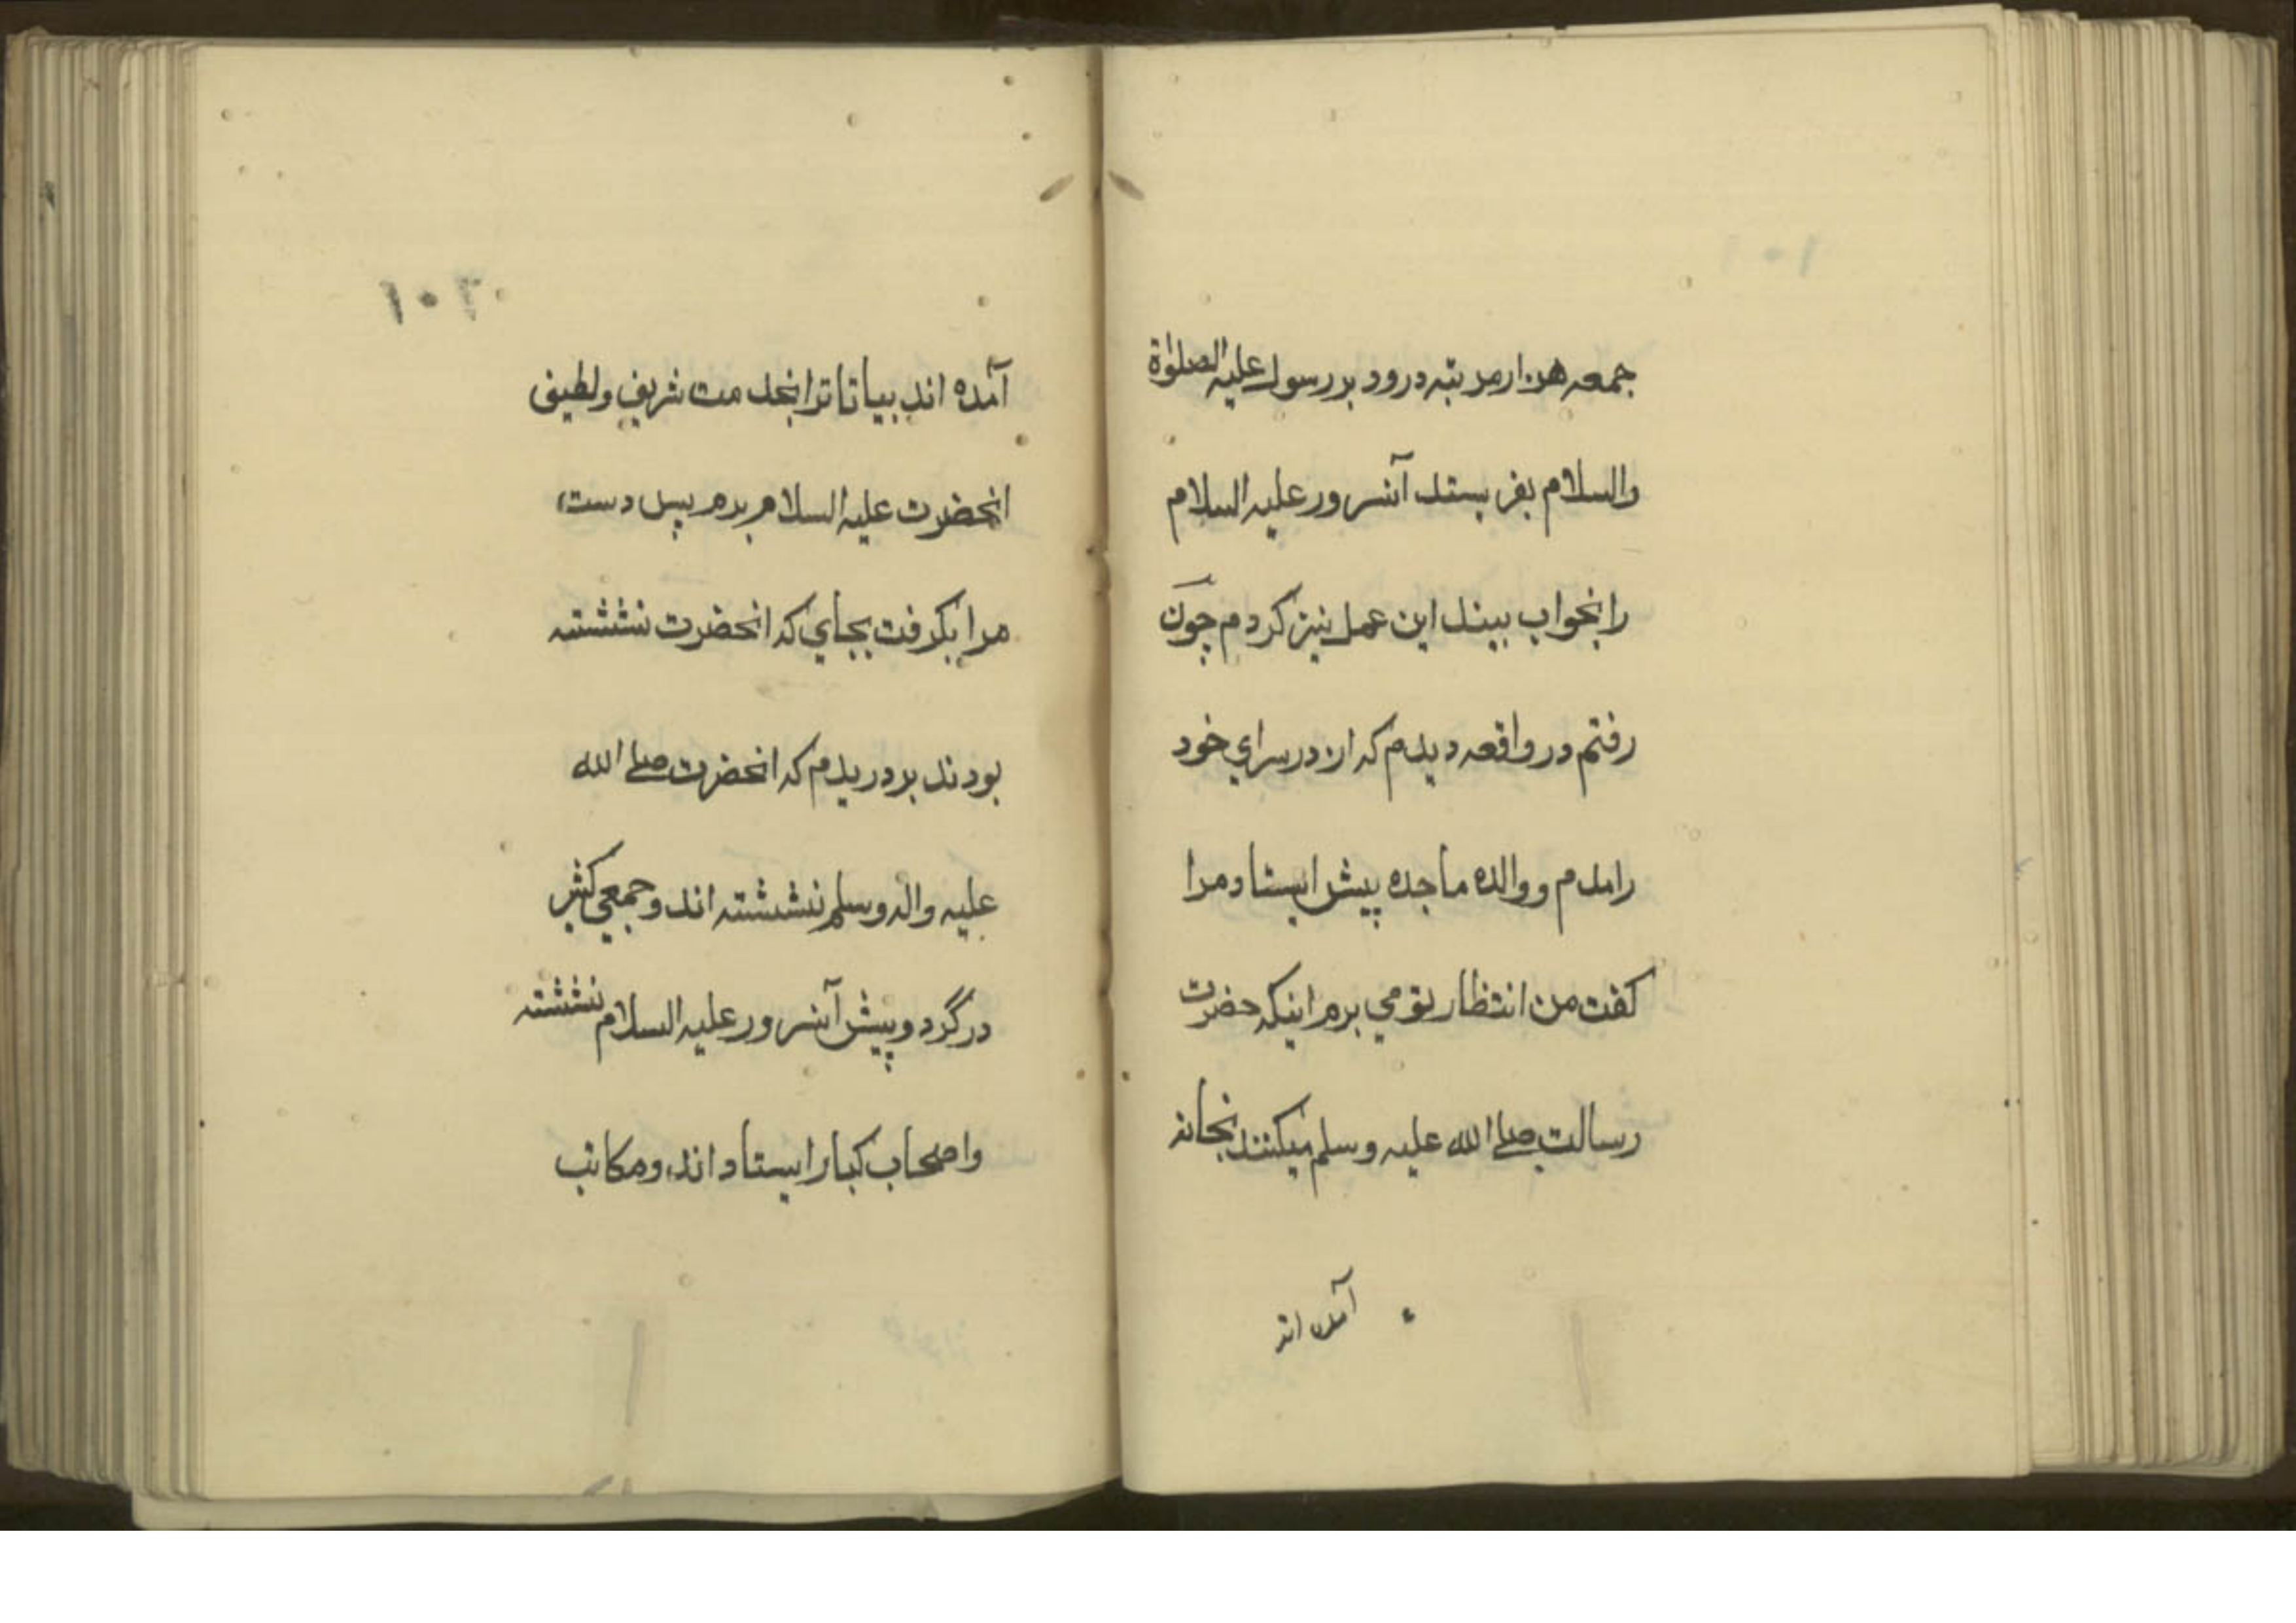 جمعہ هزار مرتبہ درود بر رسول علیہ الصلوٰة
والسلام بفرستد آنسرور علیہ السلام
را بخواب بیند این عمل نیز کردم چون
رفتم در واقعہ دیدم کہ از در سرای خود
رامدم ووالده ماجده پیش ایستاد مرا
کفت من انتظار تو می برم اینکہ حضرت
رسالت صلے الله علیہ وسلم میکنند بخانہ
آمده اند
۱۰۲
آمده اند بیا تا ترا بخدمت شریف ولطیف
انحضرت علیہ السلام برم پس دست
مرا بکرفت بجای کہ انحضرت نششتہ
بودند برد دیدم کہ انحضرت صلے الله
علیہ والہ وسلم نششتہ اند وجمعی کثیر
در گرد وپیش آنسرور علیہ السلام نششتہ
واصحاب کبار ایستاد اند ومکاتب